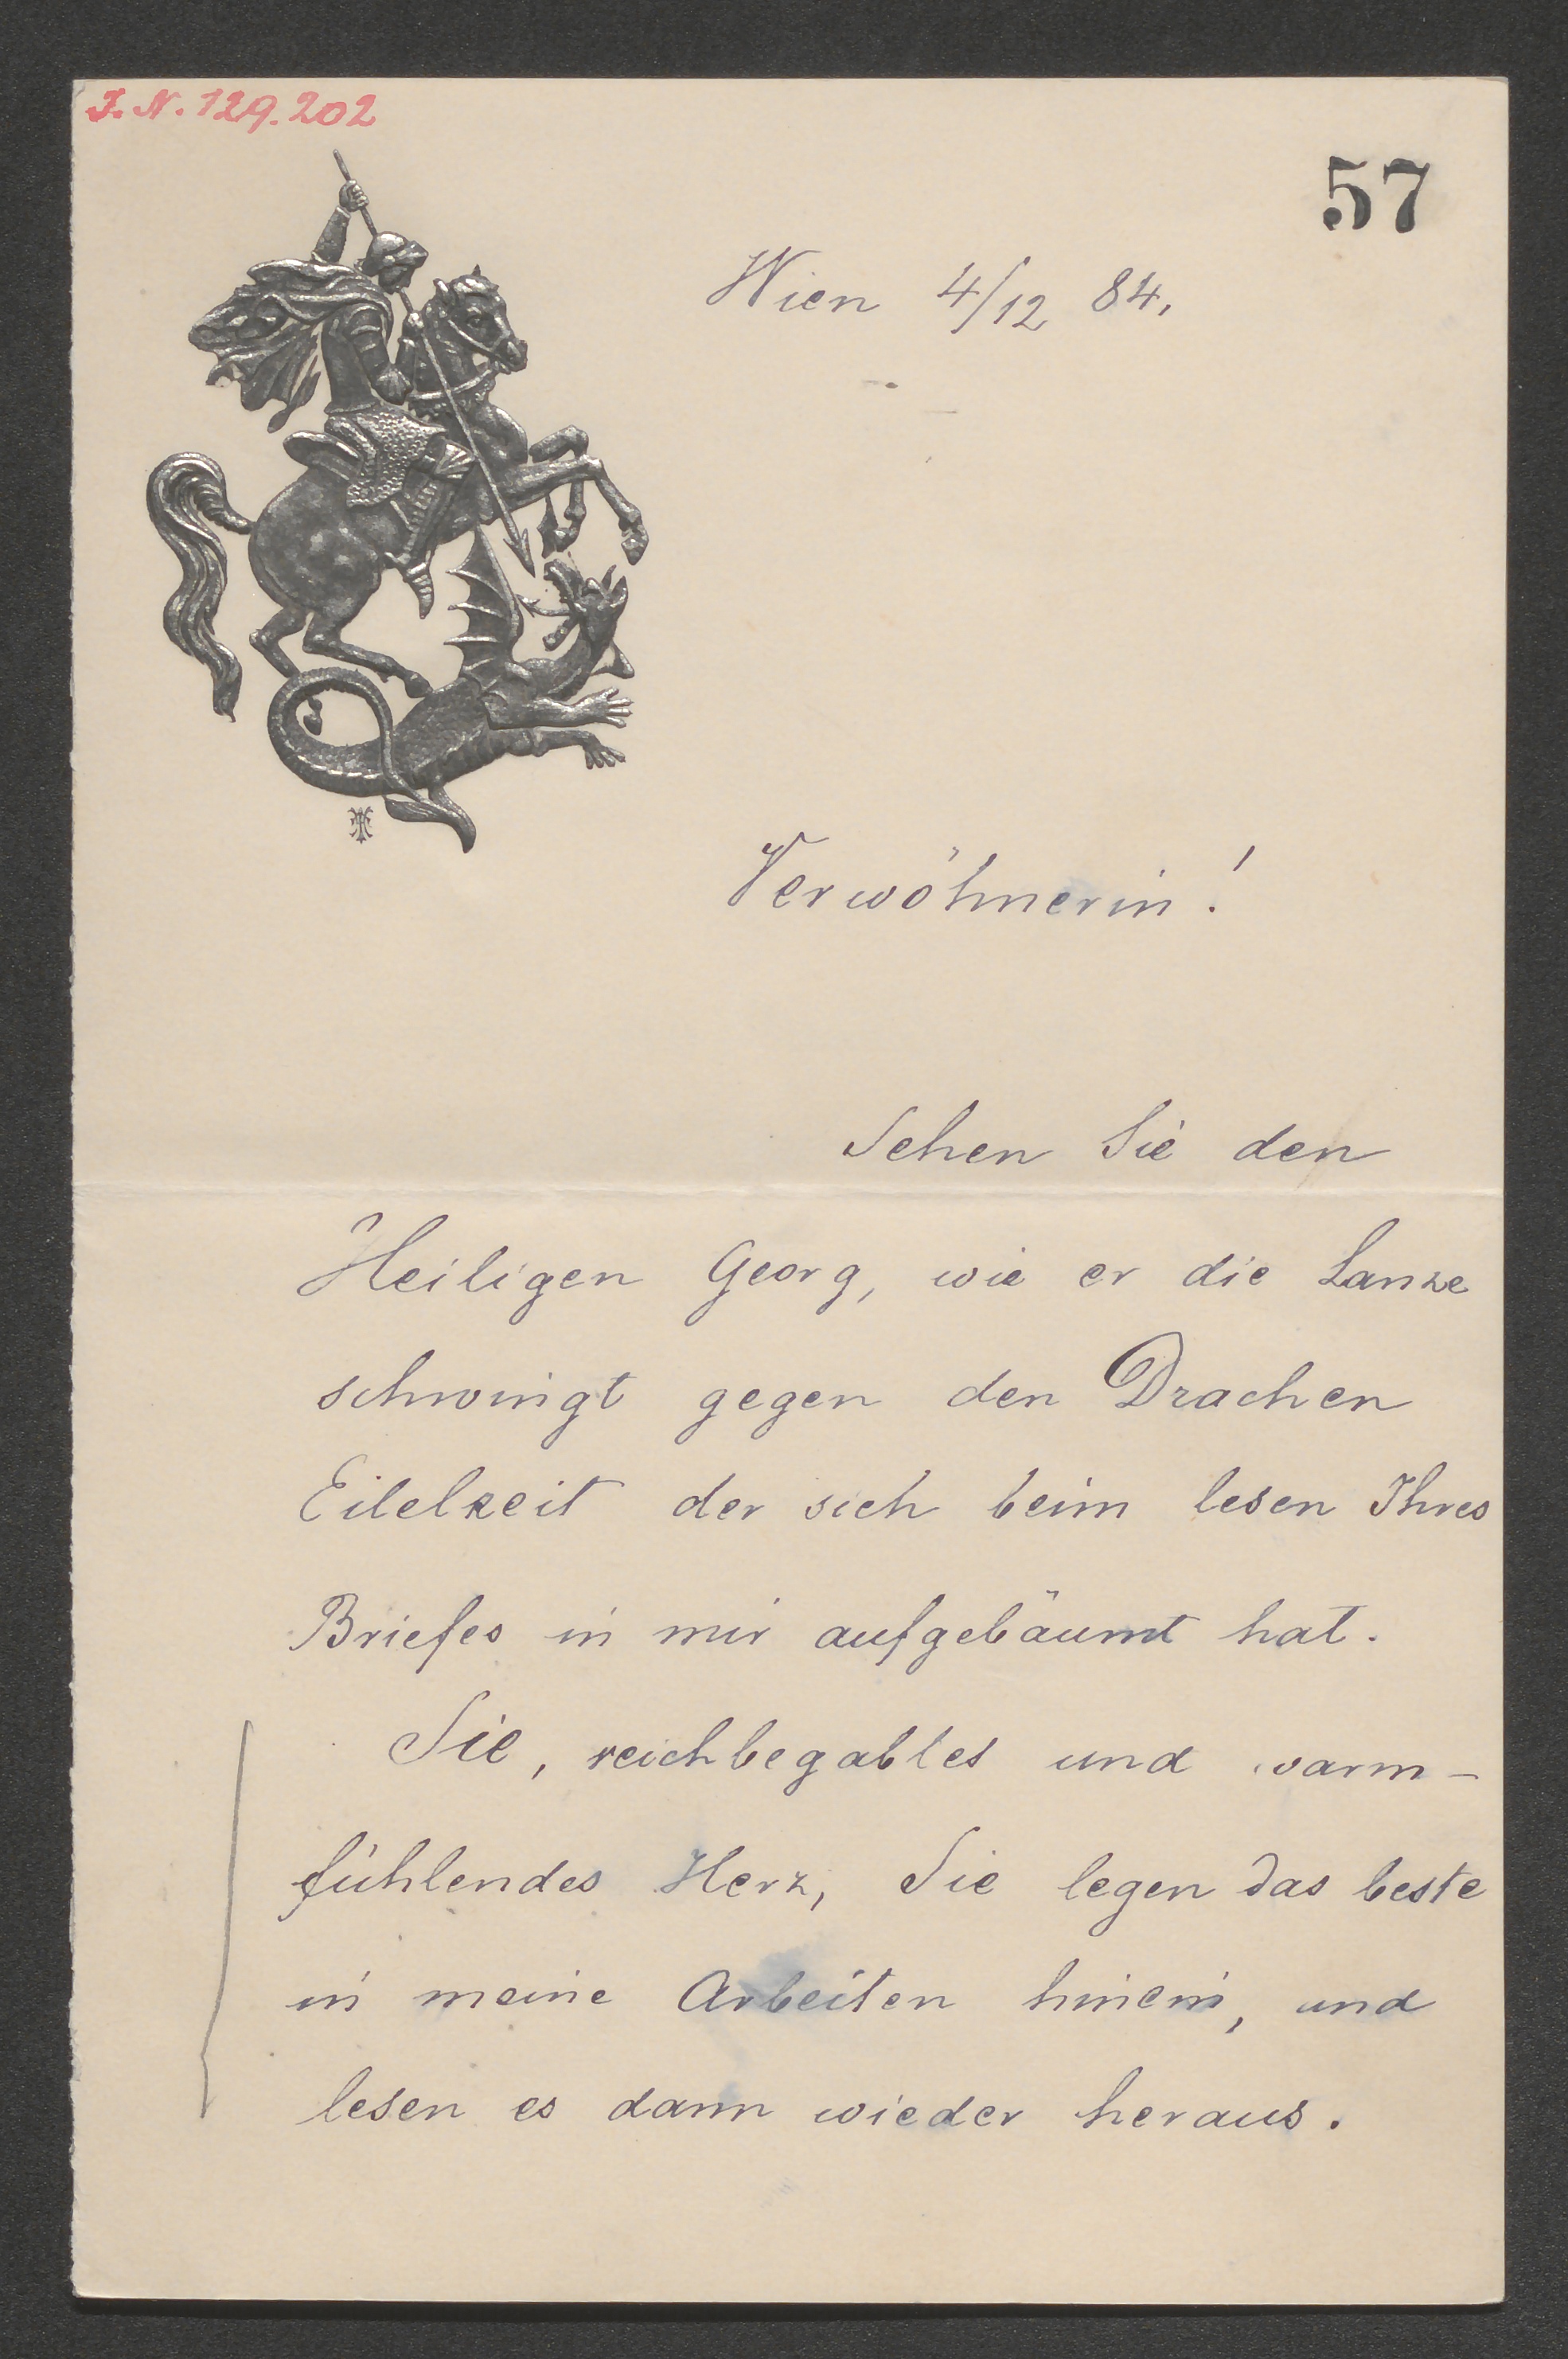 I. N. 129.202
57
Wien 4/12 84.
Verwöhnerin!
Sehen Sie den
Heiligen Georg, wie er die Lanze
schwingt gegen den Drachen
Eitelkeit der sich beim lesen Ihres
Briefes in mir aufgebäumt hat.
Sie, reichbegabtes und warm-
fühlendes Herz, Sie legen das beste
in meine Arbeiten hinein, und
lesen es dann wieder heraus.